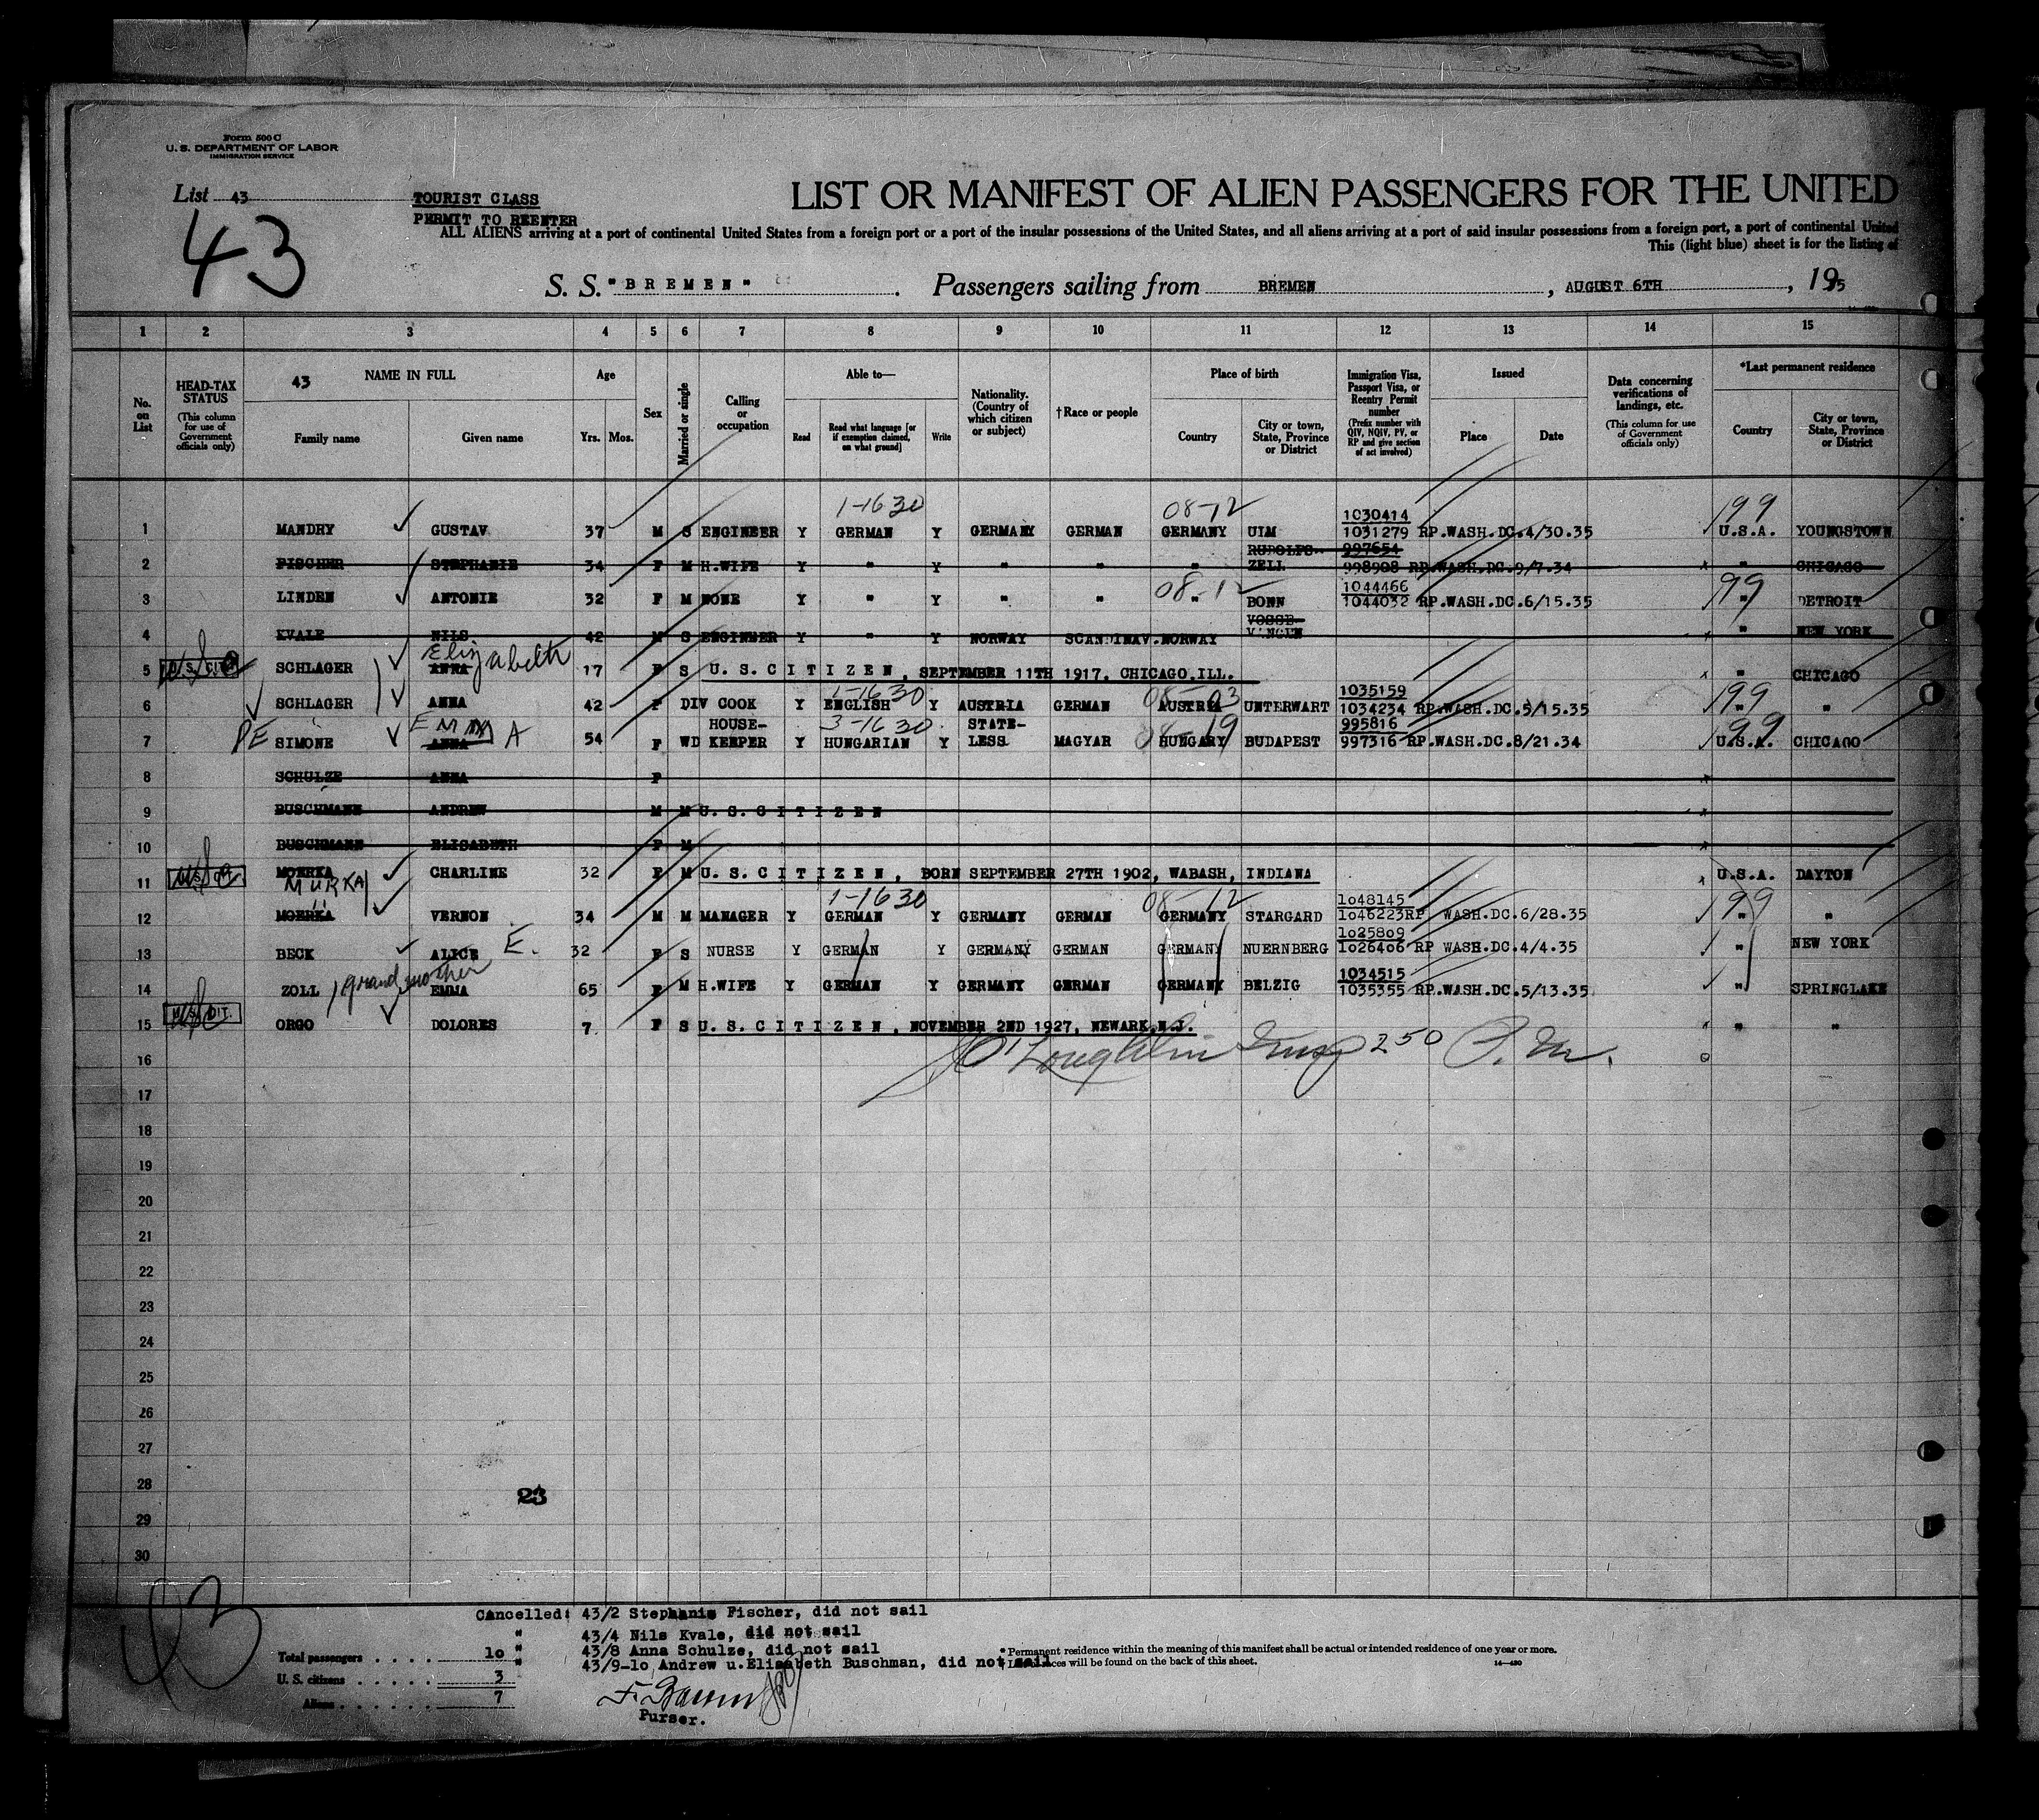 Form 500 C
U. S. DEPARTMENT OF LABOR
IMMIGRATION SERVICE
List 43
TOURIST CLASS
PERMIT TO REENTER
43
LIST OR MANIFEST OF ALIEN PASSENGERS FOR THE UNITED
ALL ALIENS arriving at a port of continental United States from a foreign port or a port of the insular possessions of the United States, and all aliens arriving at a port of said insular possessions from a foreign port, a port of continental United
This (light blue) sheet is for the listing of
S. S. "BREMEN" . Passengers sailing from BREMEN , AUGUST 6TH , 1935
1 2 3 4 5 6 7 8 9 10 11 12 13 14 15
No. on List
HEAD-TAX STATUS (This column for use of Government officials only)
43 NAME IN FULL
Family name Given name
Age Yrs. Mos.
Sex
Married or single
Calling or occupation
Able to— Read Read what language [or if exemption claimed, on what ground] Write
Nationality. (Country of which citizen or subject)
†Race or people
Place of birth Country City or town, State, Province or District
Immigration Visa, Passport Visa, or Reentry Permit number (Prefix number with QIV, NQIV, PV, or RP and give section of act involved)
Issued Place Date
Data concerning verifications of landings, etc. (This column for use of Government officials only)
*Last permanent residence Country City or town, State, Province or District
1-1630 08-12 1030414 199
1 MANDRY GUSTAV 37 M S ENGINEER Y GERMAN Y GERMANY GERMAN GERMANY UIM 1031279 RP.WASH.DC.4/30.35 U.S.A. YOUNGSTOWN
RUDOLFS- 997654
2 FISCHER STEPHANIE 34 F M H.WIFE Y " Y " " " ZELL 998908 RP.WASH.DC.9/7.34 " CHICAGO
08-12 1044466 99
3 LINDEN ANTONIE 32 F M NONE Y " Y " " " BONN 1044032 RP.WASH.DC.6/15.35 " DETROIT
VOSSE-
4 KVALE NILS 42 M S ENGINEER Y " Y NORWAY SCANDINAV. NORWAY VANGEN " NEW YORK
Elizabeth
5 U.S. CIT. SCHLAGER ANNA 17 F S U. S. C I T I Z E N, SEPTEMBER 11TH 1917, CHICAGO,ILL. " CHICAGO
1-1630 08-03 1035159 199
6 SCHLAGER ANNA 42 F DIV COOK Y ENGLISH Y AUSTRIA GERMAN AUSTRIA UNTERWART 1034234 RP.WASH.DC.5/15.35 " "
EMMA HOUSE- 3-1630 STATE- 08-19 995816 199
7 PE SIMONE ANNA 54 F WD KEEPER Y HUNGARIAN Y LESS MAGYAR HUNGARY BUDAPEST 997316 RP.WASH.DC.8/21.34 U.S.A. CHICAGO
8 SCHULZE ANNA F
9 BUSCHMANN ANDREW M M U. S. C I T I Z E N
10 BUSCHMANN ELISABETH F M
11 MOERKA CHARLINE 32 F M U. S. C I T I Z E N, BORN SEPTEMBER 27TH 1902, WABASH, INDIANA U.S.A. DAYTON
MÜRKA 1-1630 08-12 1048145 199
12 MOERKA VERNON 34 M M MANAGER Y GERMAN Y GERMANY GERMAN GERMANY STARGARD 1046223RP WASH.DC.6/28.35 " "
1025809
13 BECK ALICE E. 32 F S NURSE Y GERMAN Y GERMANY GERMAN GERMANY NUERNBERG 1026406 RP WASH.DC.4/4.35 " NEW YORK
grandmother 1034515
14 ZOLL EMMA 65 F M H.WIFE Y GERMAN Y GERMANY GERMAN GERMANY BELZIG 1035355 RP.WASH.DC.5/13.35 " SPRINGLAKE
15 U.S. CIT. ORGO DOLORES 7 F S U. S. C I T I Z E N, NOVEMBER 2ND 1927, NEWARK,N.J. " "
O'Loughlin Insp 250 P.M.
16
17
18
19
20
21
22
23
24
25
26
27
28
23
29
30
43
Cancelled: 43/2 Stephanie Fischer, did not sail
" 43/4 Nils Kvale, did not sail
" 43/8 Anna Schulze, did not sail
" 43/9-10 Andrew u.Elisabeth Buschman, did not sail
Total passengers . . . . 10
U. S. citizens . . . . . 3
Aliens . . . . . 7
Purser.
* Permanent residence within the meaning of this manifest shall be actual or intended residence of one year or more.
† List of races will be found on the back of this sheet.
14—430